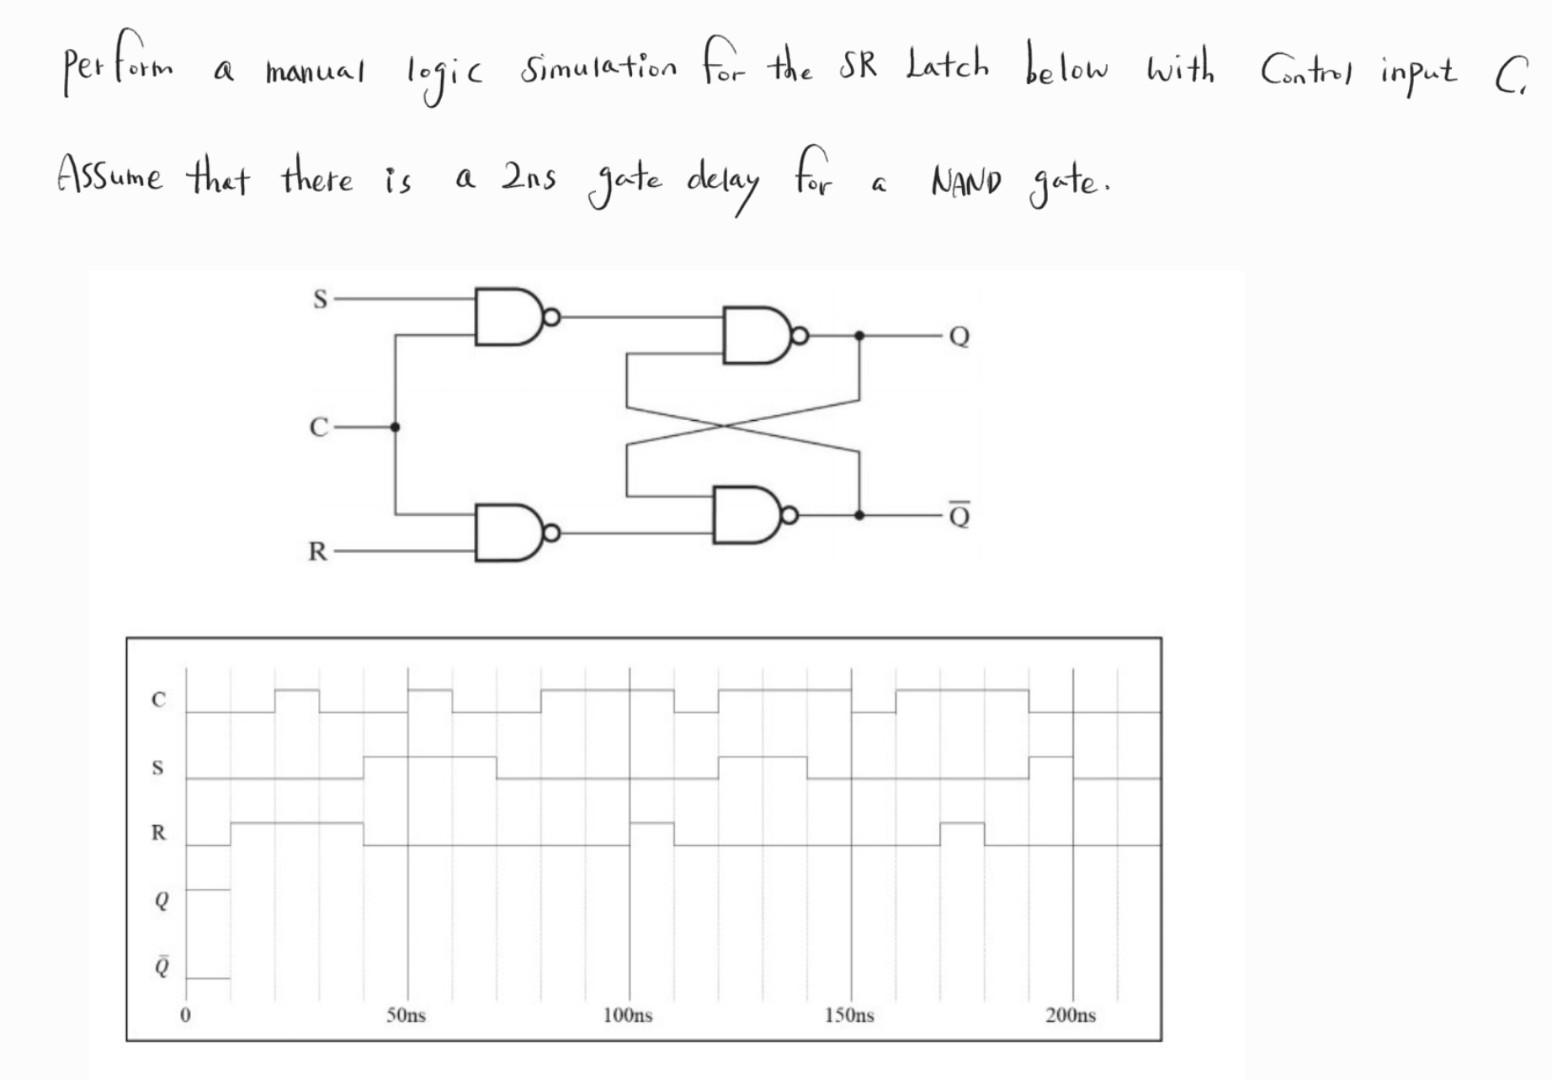 Perform a manual logic simulation for the SR Latch below with Control input C.
Assume that there is a 2ns gate delay for a NAND gate.
S
Q
C
Q̅
R
C
S
R
Q
Q̅
0 50ns 100ns 150ns 200ns